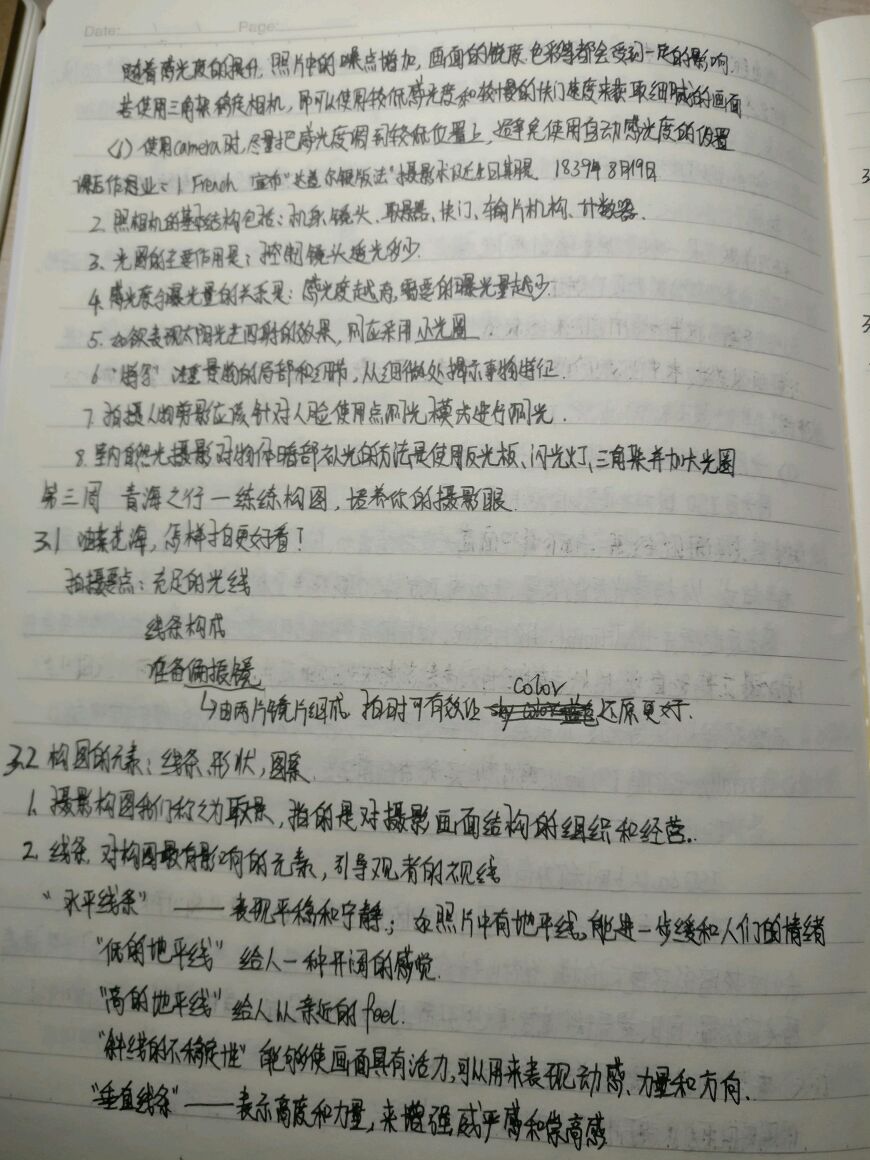 Date: Page:
随着感光度的提升, 照片中的噪点增加, 画面的锐度、色彩等都会受到一定的影响.
若使用三角架稳定相机, 即可以使用较低感光度和较慢的快门速度来获取细腻的画面
(1) 使用camera时, 尽量把感光度调到较低位置上, 避免使用自动感光度的设置
课后作业: 1. French 宣布"达盖尔银版法"摄影术诞生日期是 1839年8月19日.
2. 照相机的基本结构包括: 机身、镜头、取景器、快门、输片机构、计数器.
3. 光圈的主要作用是: 控制镜头透光多少.
4. 感光度与曝光量的关系是: 感光度越高, 需要的曝光量越少.
5. 如欲表现太阳光芒四射的效果, 则应采用 小光圈.
6. "特写" 注重景物的局部和细节, 从细微处揭示事物特征.
7. 拍摄人物剪影应该针对人脸使用点测光模式进行测光.
8. 室内自然光摄影对物体暗部补光的方法是使用反光板、闪光灯、三角架并加大光圈
第三周 青海之行一练练构图, 培养你的摄影眼.
3.1 油菜花海, 怎样拍更好看?
拍摄要点: 充足的光线
线条构成
准备偏振镜
color
↳由两片镜片组成. 拍时可有效让 还原更好.
3.2 构图的元素: 线条、形状, 图案.
1. 摄影构图我们称之为取景, 指的是对摄影画面结构的组织和经营.
2. 线条. 对构图最有影响的元素, 引导观者的视线
"水平线条" —— 表现平稳和宁静; 如照片中有地平线, 能进一步缓和人们的情绪
"低的地平线" 给人一种开阔的感觉.
"高的地平线" 给人以亲近的feel.
"斜线的不稳定性" 能够使画面具有活力, 可以用来表现动感、力量和方向.
"垂直线条" —— 表示高度和力量, 来增强威严感和崇高感